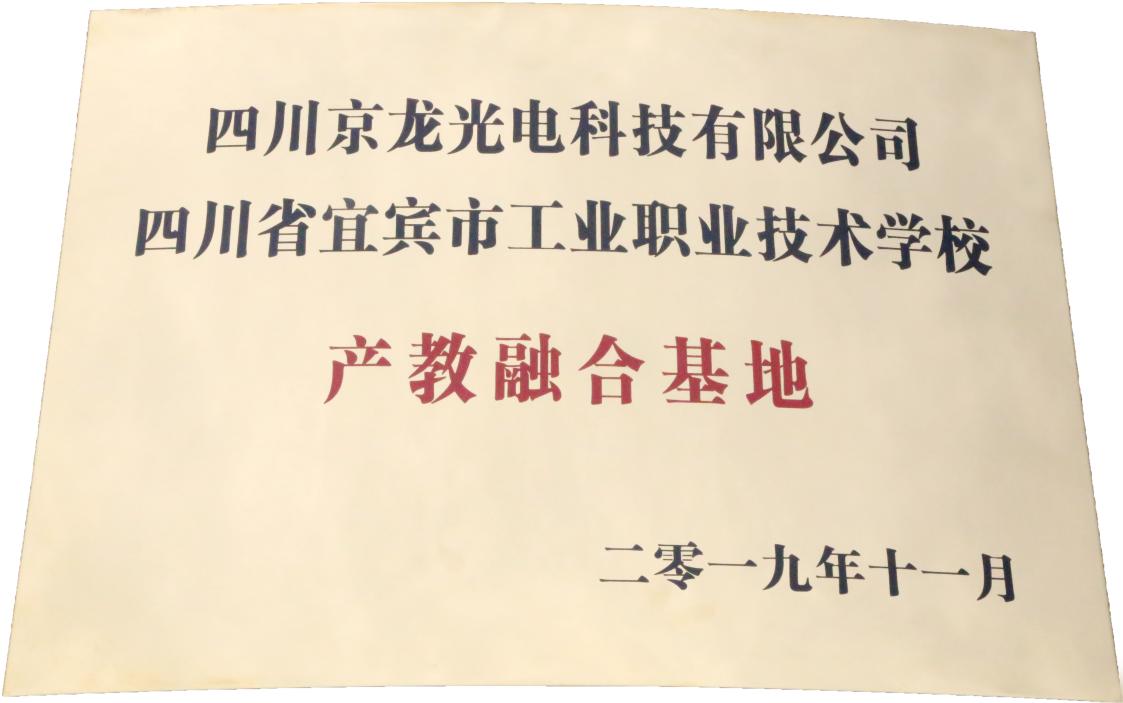 四川京龙光电科技有限公司
四川省宜宾市工业职业技术学校
产教融合基地
二零一九年十一月